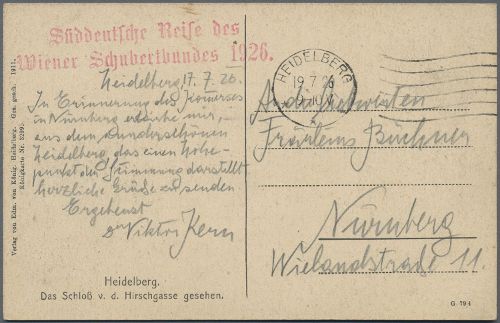 Süddeutsche Reise des
Wiener Schubertbundes 1926.
Heidelberg, 17.7.26.
In Erinnerung des Kommerses
in Nürnberg erlaube mir,
aus dem wunderschönen
Heidelberg, das einen Höhe-
punkt der Stimmung darstellt
herzliche Grüße zu senden.
Ergebenst
Dr Viktor Kern
Heidelberg.
Das Schloß v. d. Hirschgasse gesehen.
Verlag von Edm. von König, Heidelberg. Ges. gesch. 1911.
Königkarte Nr.
HEIDELBERG
19.7.26
An die
Fräulein Büchner
Nürnberg
Wielandstraße 11.
G. 19 i